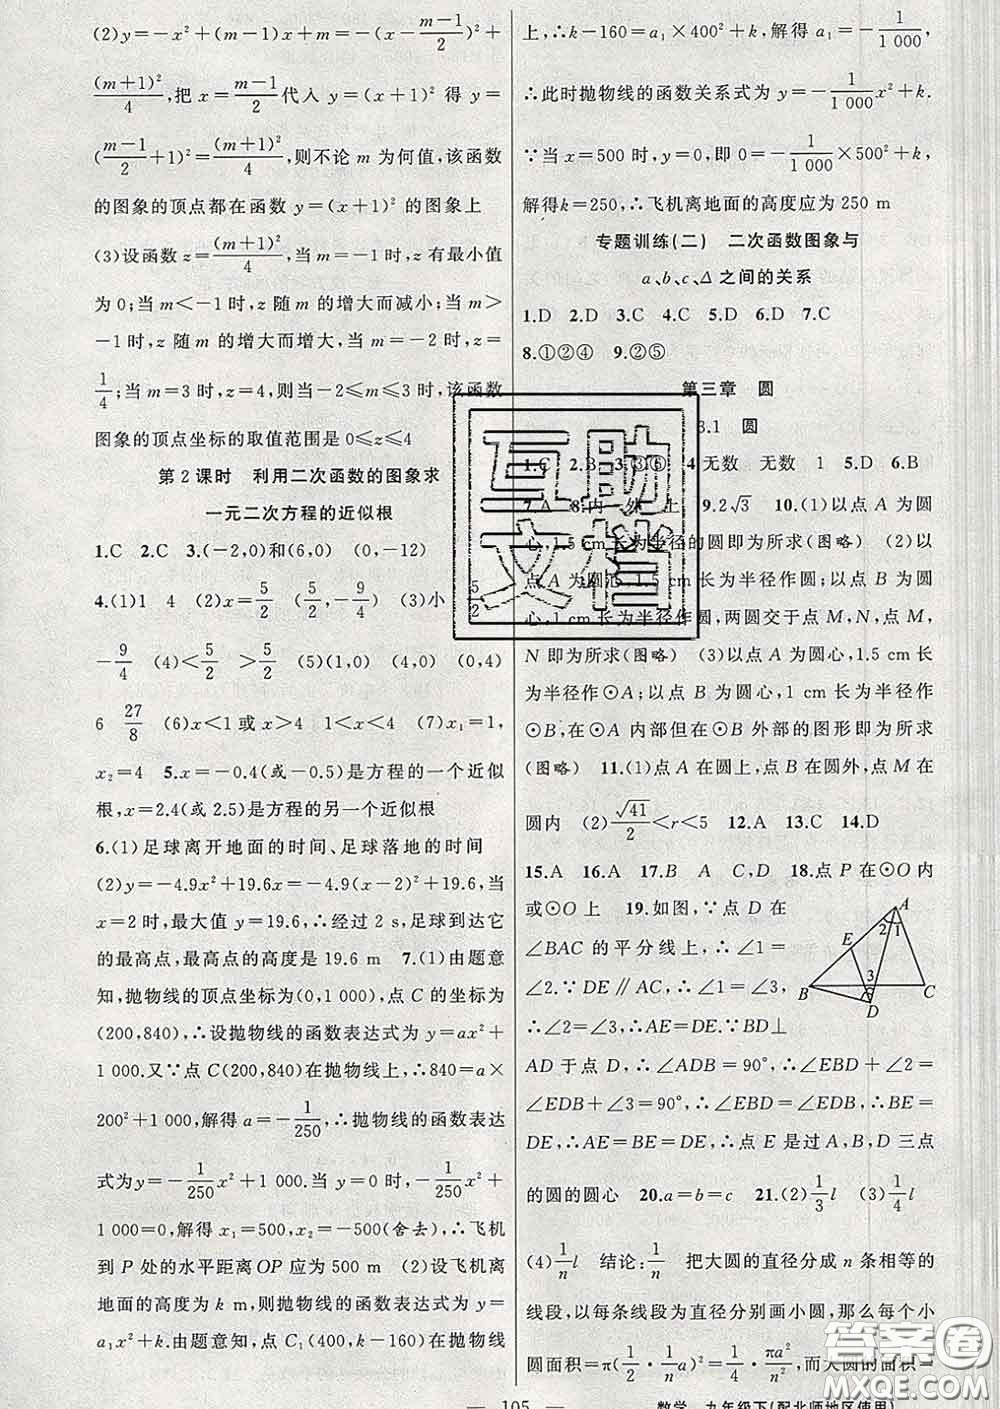 (2)y=-x²+(m-1)x+m=-(x-\frac{m-1}{2})²+
\frac{(m+1)²}{4},把 x=\frac{m-1}{2}代入 y=(x+1)² 得 y=
(\frac{m-1}{2}+1)²=\frac{(m+1)²}{4},则不论 m 为何值,该函数
的图象的顶点都在函数 y=(x+1)² 的图象上
(3)设函数 z=\frac{(m+1)²}{4},当 m=-1 时,z 有最小值
为 0;当 m<-1 时,z 随 m 的增大而减小;当 m>
-1 时,z 随 m 的增大而增大,当 m=-2 时,z=
\frac{1}{4};当 m=3 时,z=4,则当-2≤m≤3 时,该函数
图象的顶点坐标的取值范围是 0≤z≤4
第 2 课时 利用二次函数的图象求
一元二次方程的近似根
1.C 2.C 3.(-2,0)和(6,0) (0,-12)
4.(1)1 4 (2)x=\frac{5}{2} (\frac{5}{2},-\frac{9}{4}) (3)小 \frac{5}{2}
-\frac{9}{4} (4)<\frac{5}{2} >\frac{5}{2} (5)(1,0) (4,0) (0,4)
6 \frac{27}{8} (6)x<1 或 x>4 1<x<4 (7)x₁=1,
x₂=4 5.x=-0.4(或-0.5)是方程的一个近似
根,x=2.4(或 2.5)是方程的另一个近似根
6.(1)足球离开地面的时间、足球落地的时间
(2)y=-4.9x²+19.6x=-4.9(x-2)²+19.6,当
x=2 时,最大值 y=19.6,∴经过 2 s,足球到达它
的最高点,最高点的高度是 19.6 m 7.(1)由题意
知,抛物线的顶点坐标为(0,1 000),点 C 的坐标为
(200,840),∴设抛物线的函数表达式为 y=ax²+
1 000.又∵点 C(200,840)在抛物线上,∴840=a×
200²+1 000,解得 a=-\frac{1}{250},∴抛物线的函数表达
式为 y=-\frac{1}{250}x²+1 000.当 y=0 时,-\frac{1}{250}x²+
1 000=0,解得 x₁=500,x₂=-500(舍去),∴飞机
到 P 处的水平距离 OP 应为 500 m (2)设飞机离
地面的高度为 k m,则抛物线的函数表达式为 y=
a₁x²+k.由题意知,点 C₁(400,k-160)在抛物线
上,∴k-160=a₁×400²+k,解得 a₁=-\frac{1}{1 000},
∴此时抛物线的函数关系式为 y=-\frac{1}{1 000}x²+k.
∵当 x=500 时,y=0,即 0=-\frac{1}{1 000}×500²+k,
解得 k=250,∴飞机离地面的高度应为 250 m
专题训练(二) 二次函数图象与
a、b、c、Δ 之间的关系
1.D 2.D 3.C 4.C 5.D 6.D 7.C
8.①②④ 9.②⑤
第三章 圆
3.1 圆
1.C 2.B 3.③⑤ 4.无数 无数 1 5.D 6.B
7.A 8.内 外 上 9.2√3 10.(1)以点 A 为圆
心,1.5 cm 长为半径的圆即为所求(图略) (2)以
点 A 为圆心,1.5 cm 长为半径作圆;以点 B 为圆
心,1 cm 长为半径作圆,两圆交于点 M,N,点 M,
N 即为所求(图略) (3)以点 A 为圆心,1.5 cm 长
为半径作⊙A;以点 B 为圆心,1 cm 长为半径作
⊙B,在⊙A 内部但在⊙B 外部的图形即为所求
(图略) 11.(1)点 A 在圆上,点 B 在圆外,点 M 在
圆内 (2)\frac{√41}{2}<r<5 12.A 13.C 14.D
15.A 16.A 17.B A C,D 18.点 P 在⊙O 内
或⊙O 上 19.如图,∵点 D 在
∠BAC 的平分线上,∴∠1=
∠2.∵DE∥AC,∴∠1=∠3,
∴∠2=∠3,∴AE=DE.∵BD⊥
A
E
B
C
D
2 1
3
AD 于点 D,∴∠ADB=90°,∴∠EBD+∠2=
∠EDB+∠3=90°,∴∠EBD=∠EDB,∴BE=
DE,∴AE=BE=DE,∴点 E 是过 A,B,D 三点
的圆的圆心 20.a=b=c 21.(2)\frac{1}{3}l (3)\frac{1}{4}l
(4)\frac{1}{n}l 结论:\frac{1}{n} 把大圆的直径分成 n 条相等的
线段,以每条线段为直径分别画小圆,那么每个小
圆面积=π(\frac{1}{2}·\frac{1}{n}a)²=\frac{1}{4}·\frac{πa²}{n²},而大圆的面积=
— 105 —
数学 九年级下(配北师地区使用)
互助
文档
答案圈
MXQE.COM